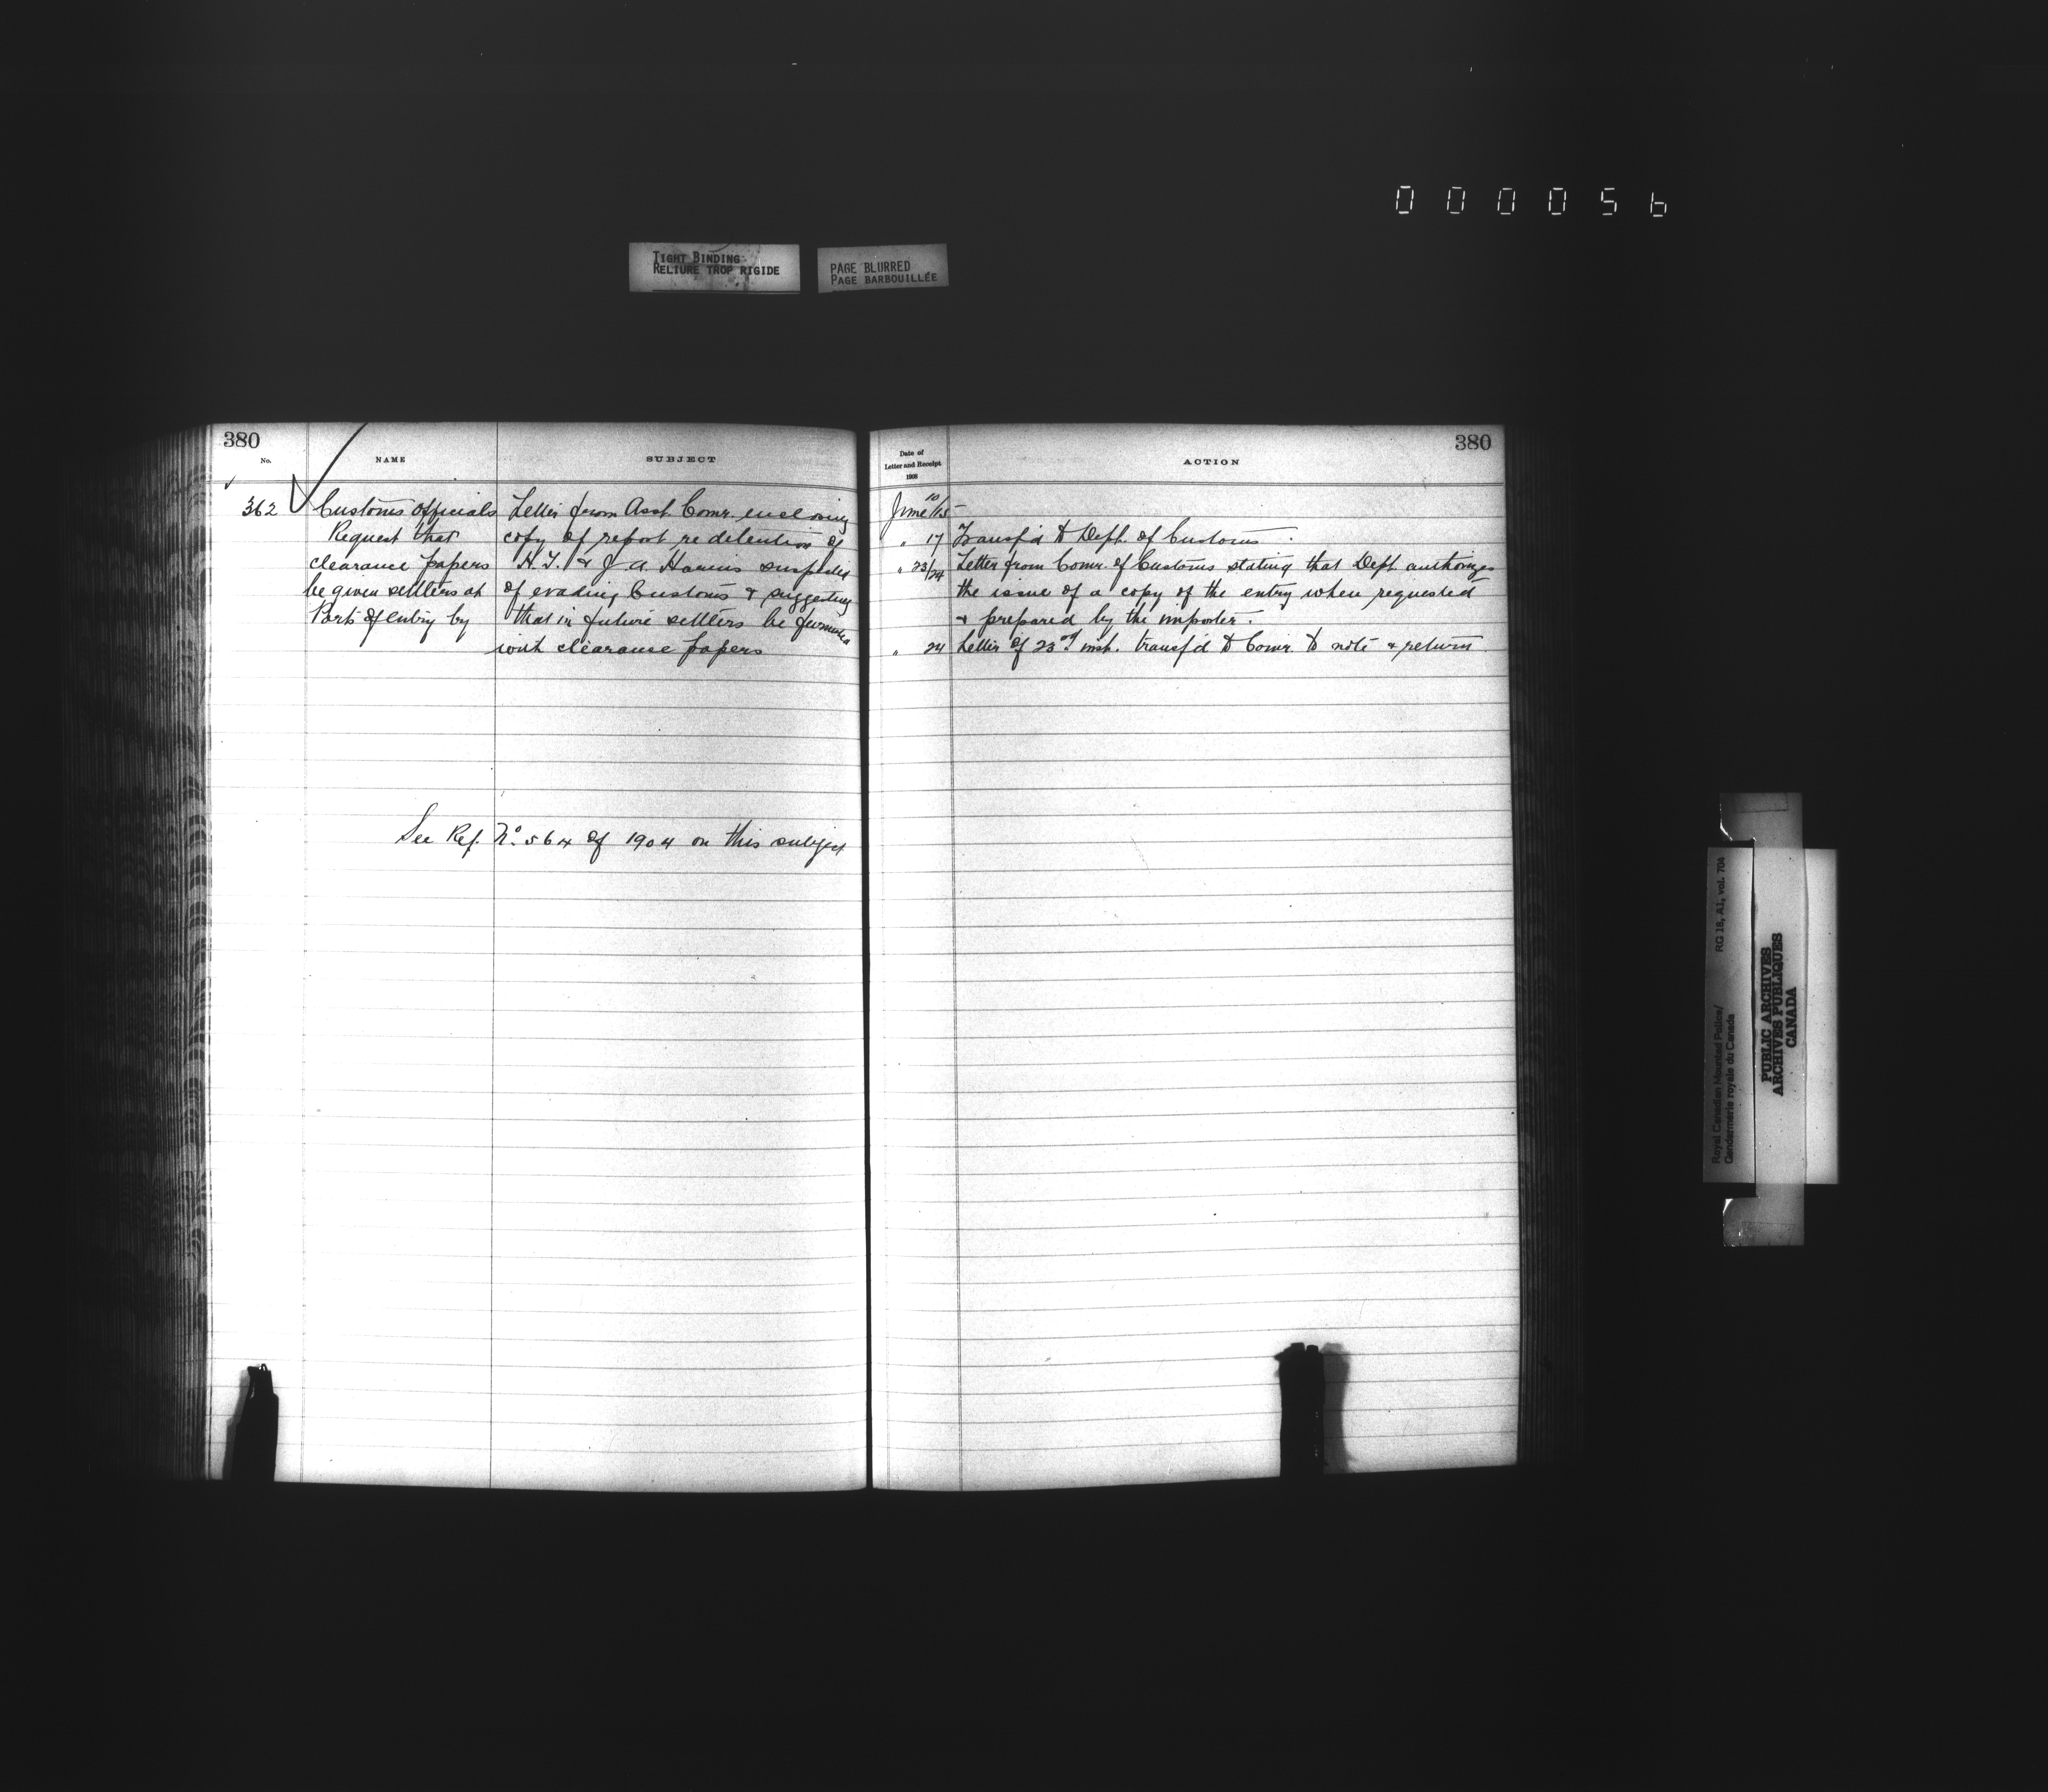 000056
TIGHT BINDING
RELIURE TROP RIGIDE
PAGE BLURRED
PAGE BARBOUILLÉE
380
No.
NAME
SUBJECT
362
Customs Officials
Request that
clearance papers
be given settlers at
Ports of entry by
Letter from Asst. Comr. enclosing
copy of report re detention of
H. T. & J. A. Harris suspected
of evading Customs & suggesting
that in future settlers be furnished
with clearance papers
See Ref. No. 564 of 1904 on this subject
380
Date of
Letter and Receipt
ACTION
June 10/15
" 17 Transf'd to Dept. of Customs.
" 23/24 Letter from Comr. of Customs stating that Dept. authorizes
the issue of a copy of the entry when requested
& prepared by the importer.
" 24 Letter of 23rd inst. transf'd to Comr. to note & return
Royal Canadian Mounted Police/
Gendarmerie royale du Canada
RG 18, A1, vol. 704
PUBLIC ARCHIVES
ARCHIVES PUBLIQUES
CANADA